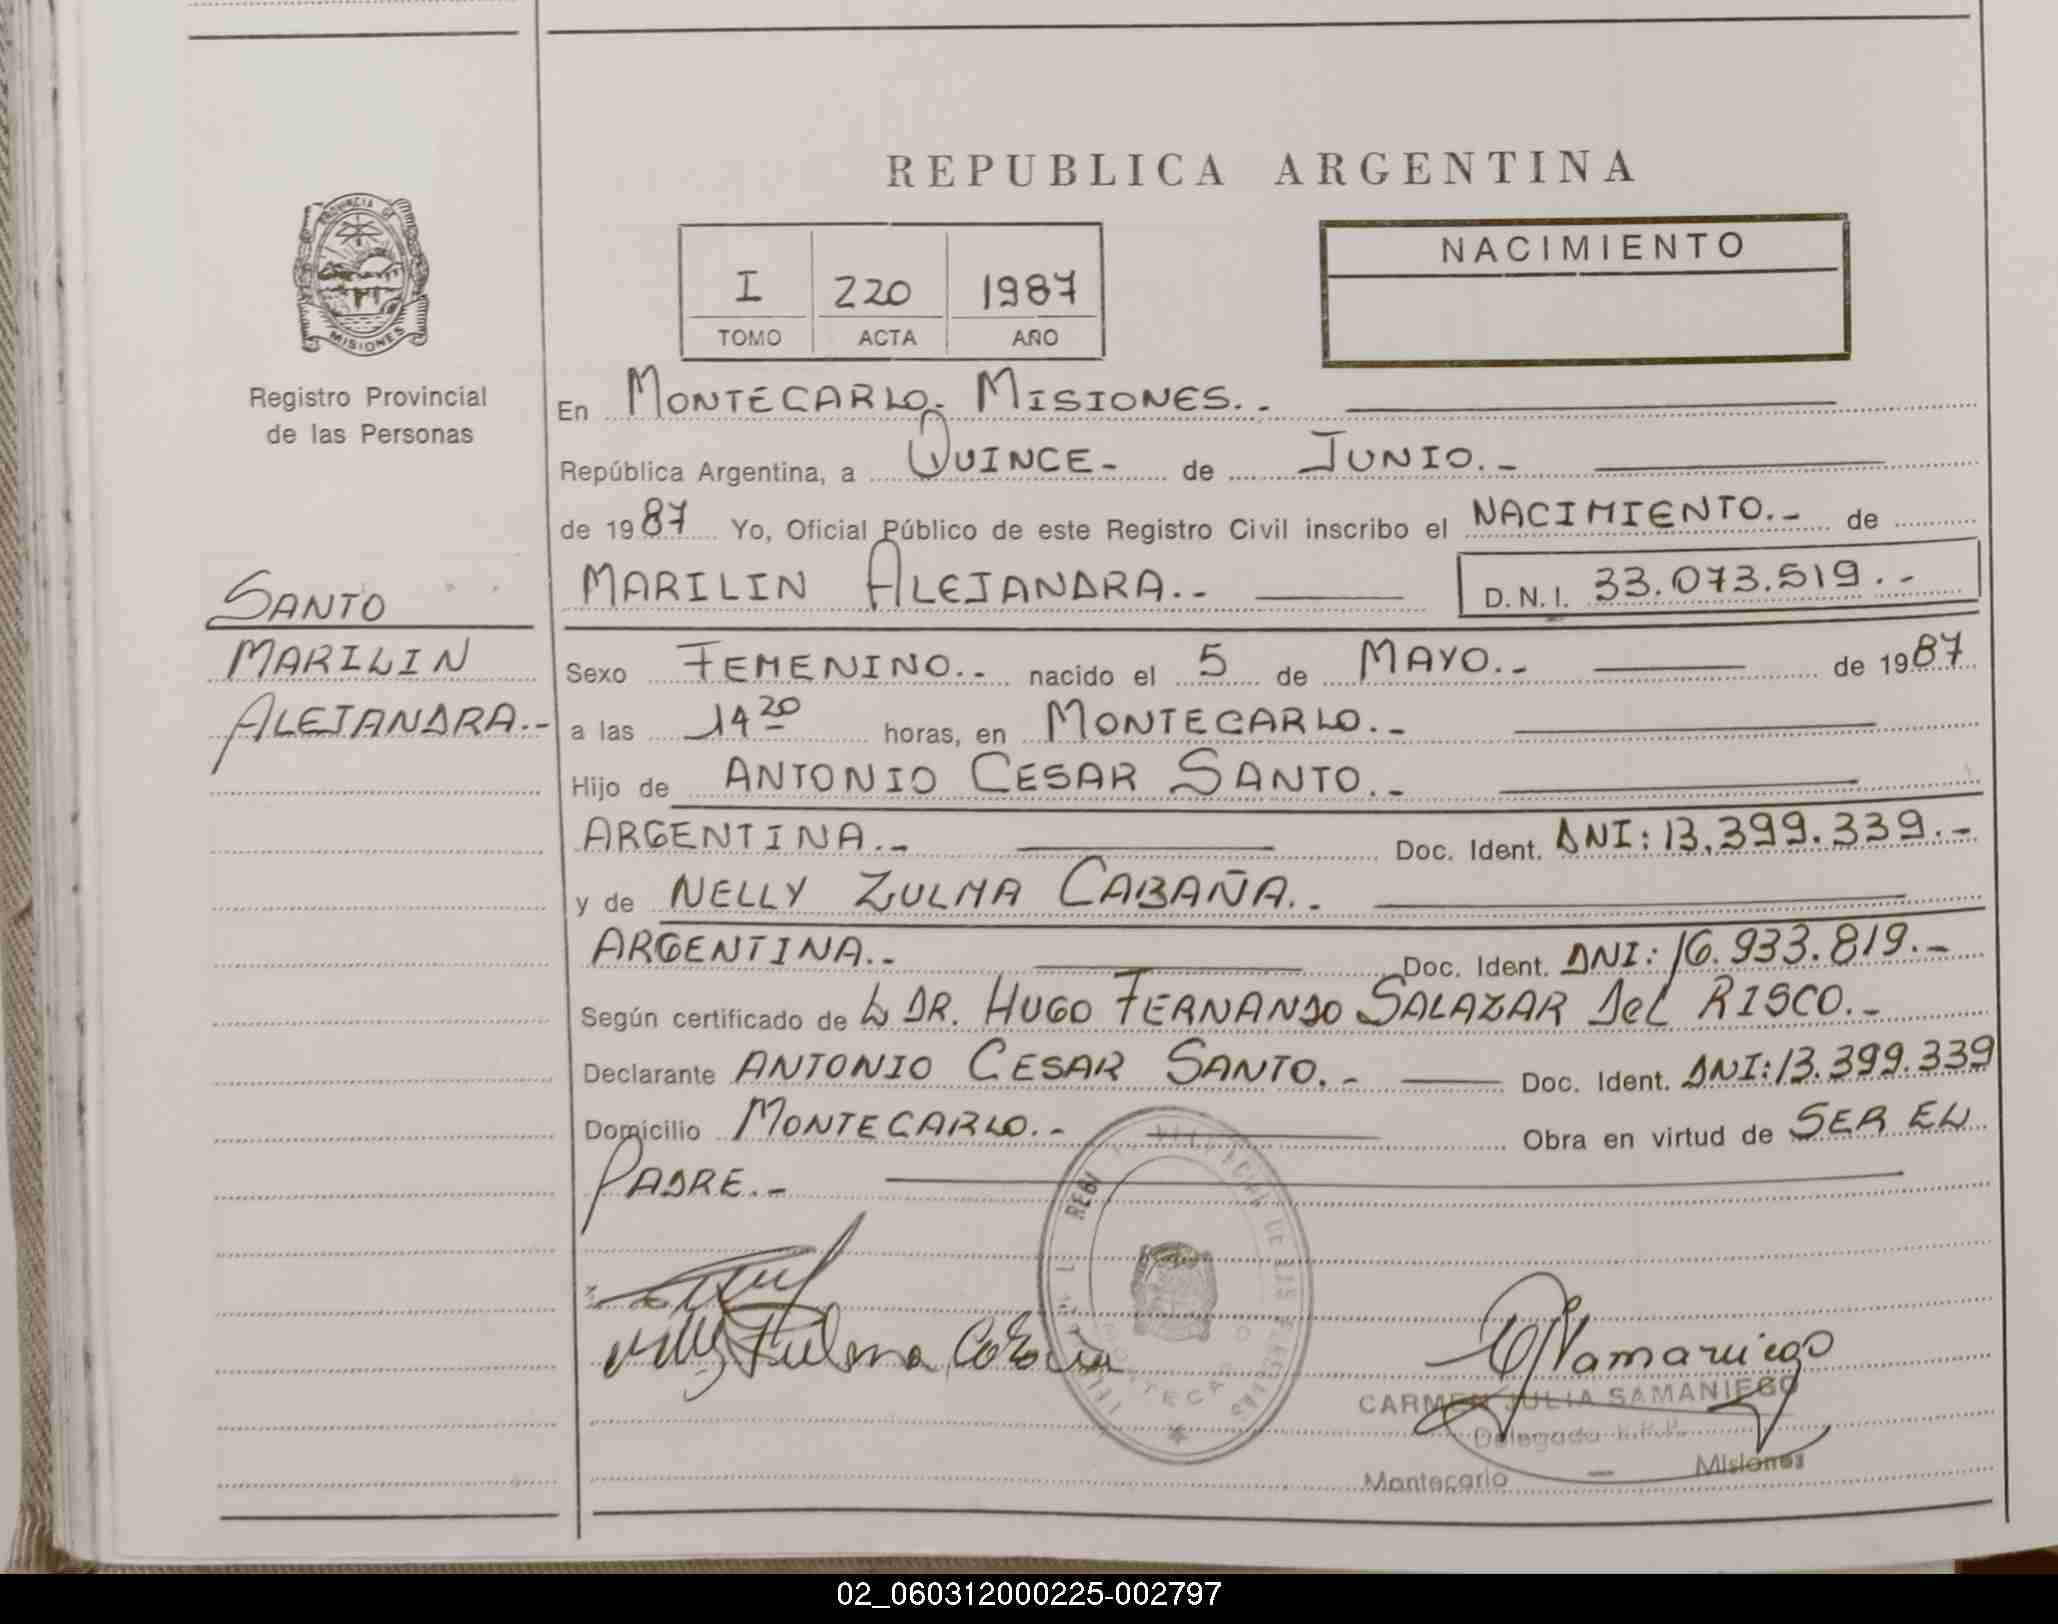 REPUBLICA ARGENTINA
PROVINCIA DE
MISIONES
Registro Provincial
de las Personas
I 220 1987
TOMO ACTA AÑO
NACIMIENTO
En MONTECARLO- MISIONES.-
República Argentina, a QUINCE- de JUNIO.-
de 1987 Yo, Oficial Público de este Registro Civil inscribo el NACIMIENTO.- de
MARILIN ALEJANDRA.- D.N.I. 33.073.519.-
SANTO
MARILIN
ALEJANDRA.-
Sexo FEMENINO.- nacido el 5 de MAYO.- de 1987
a las 14 20 horas, en MONTECARLO.-
Hijo de ANTONIO CESAR SANTO.-
ARGENTINA.- Doc. Ident. DNI: 13.399.339.-
y de NELLY ZULMA CABAÑA.-
ARGENTINA.- Doc. Ident. DNI: 16.933.819.-
Según certificado de L DR. HUGO FERNANDO SALAZAR DEL RISCO.-
Declarante ANTONIO CESAR SANTO.- Doc. Ident. DNI: 13.399.339
Domicilio MONTECARLO.- Obra en virtud de SER EL
PADRE.-
CARMEN JULIA SAMANIEGO
Delegada R.P.P.
Montecarlo - Misiones
02_060312000225-002797